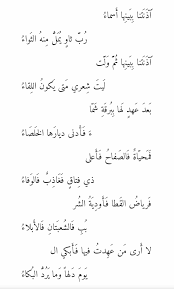 آذَنَتنا بِبَينِها أَسماءُ
رُبَّ ثاوٍ يُمَلُّ مِنهُ الثَواءُ
آذَنَتنا بِبَينِها ثُمَّ وَلَّت
لَيتَ شِعري مَتى يَكونُ اللِقاءُ
بَعدَ عَهدٍ لَها بِبُرقَةِ شَمّا
ءَ فَأَدنى دِيارِها الخَلصاءُ
فَمَحيّاةٌ فَالصَفاحُ فَأَعلى
ذي فِتاقٍ فَغَاذِبٌ فَالوَفاءُ
فَرِياضُ القَطا فَأَودِيَةُ الشُر
بُبِ فَالشُعبَتانِ فَالأَبلاءُ
لا أَرى مَن عَهِدتُ فيها فَأَبكي ال
يَومَ دَلهاً وَما يَرُدُّ البُكاءُ